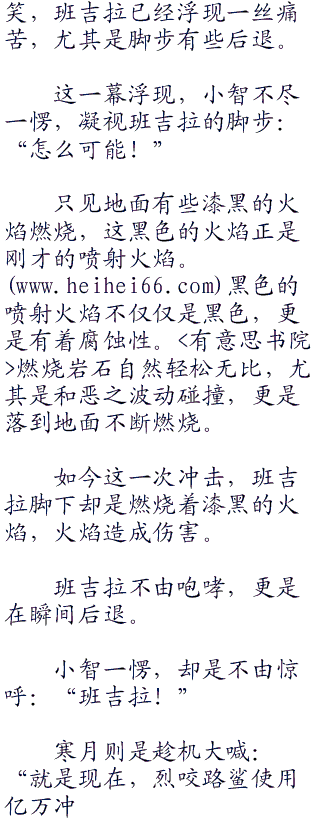 笑，班吉拉已经浮现一丝痛
苦，尤其是脚步有些后退。
这一幕浮现，小智不尽
一愣，凝视班吉拉的脚步：
“怎么可能！”
只见地面有些漆黑的火
焰燃烧，这黑色的火焰正是
刚才的喷射火焰。
(www.heihei66.com)黑色的
喷射火焰不仅仅是黑色，更
是有着腐蚀性。<有意思书院
>燃烧岩石自然轻松无比，尤
其是和恶之波动碰撞，更是
落到地面不断燃烧。
如今这一次冲击，班吉
拉脚下却是燃烧着漆黑的火
焰，火焰造成伤害。
班吉拉不由咆哮，更是
在瞬间后退。
小智一愣，却是不由惊
呼：“班吉拉！”
寒月则是趁机大喊：
“就是现在，烈咬路鲨使用
亿万冲